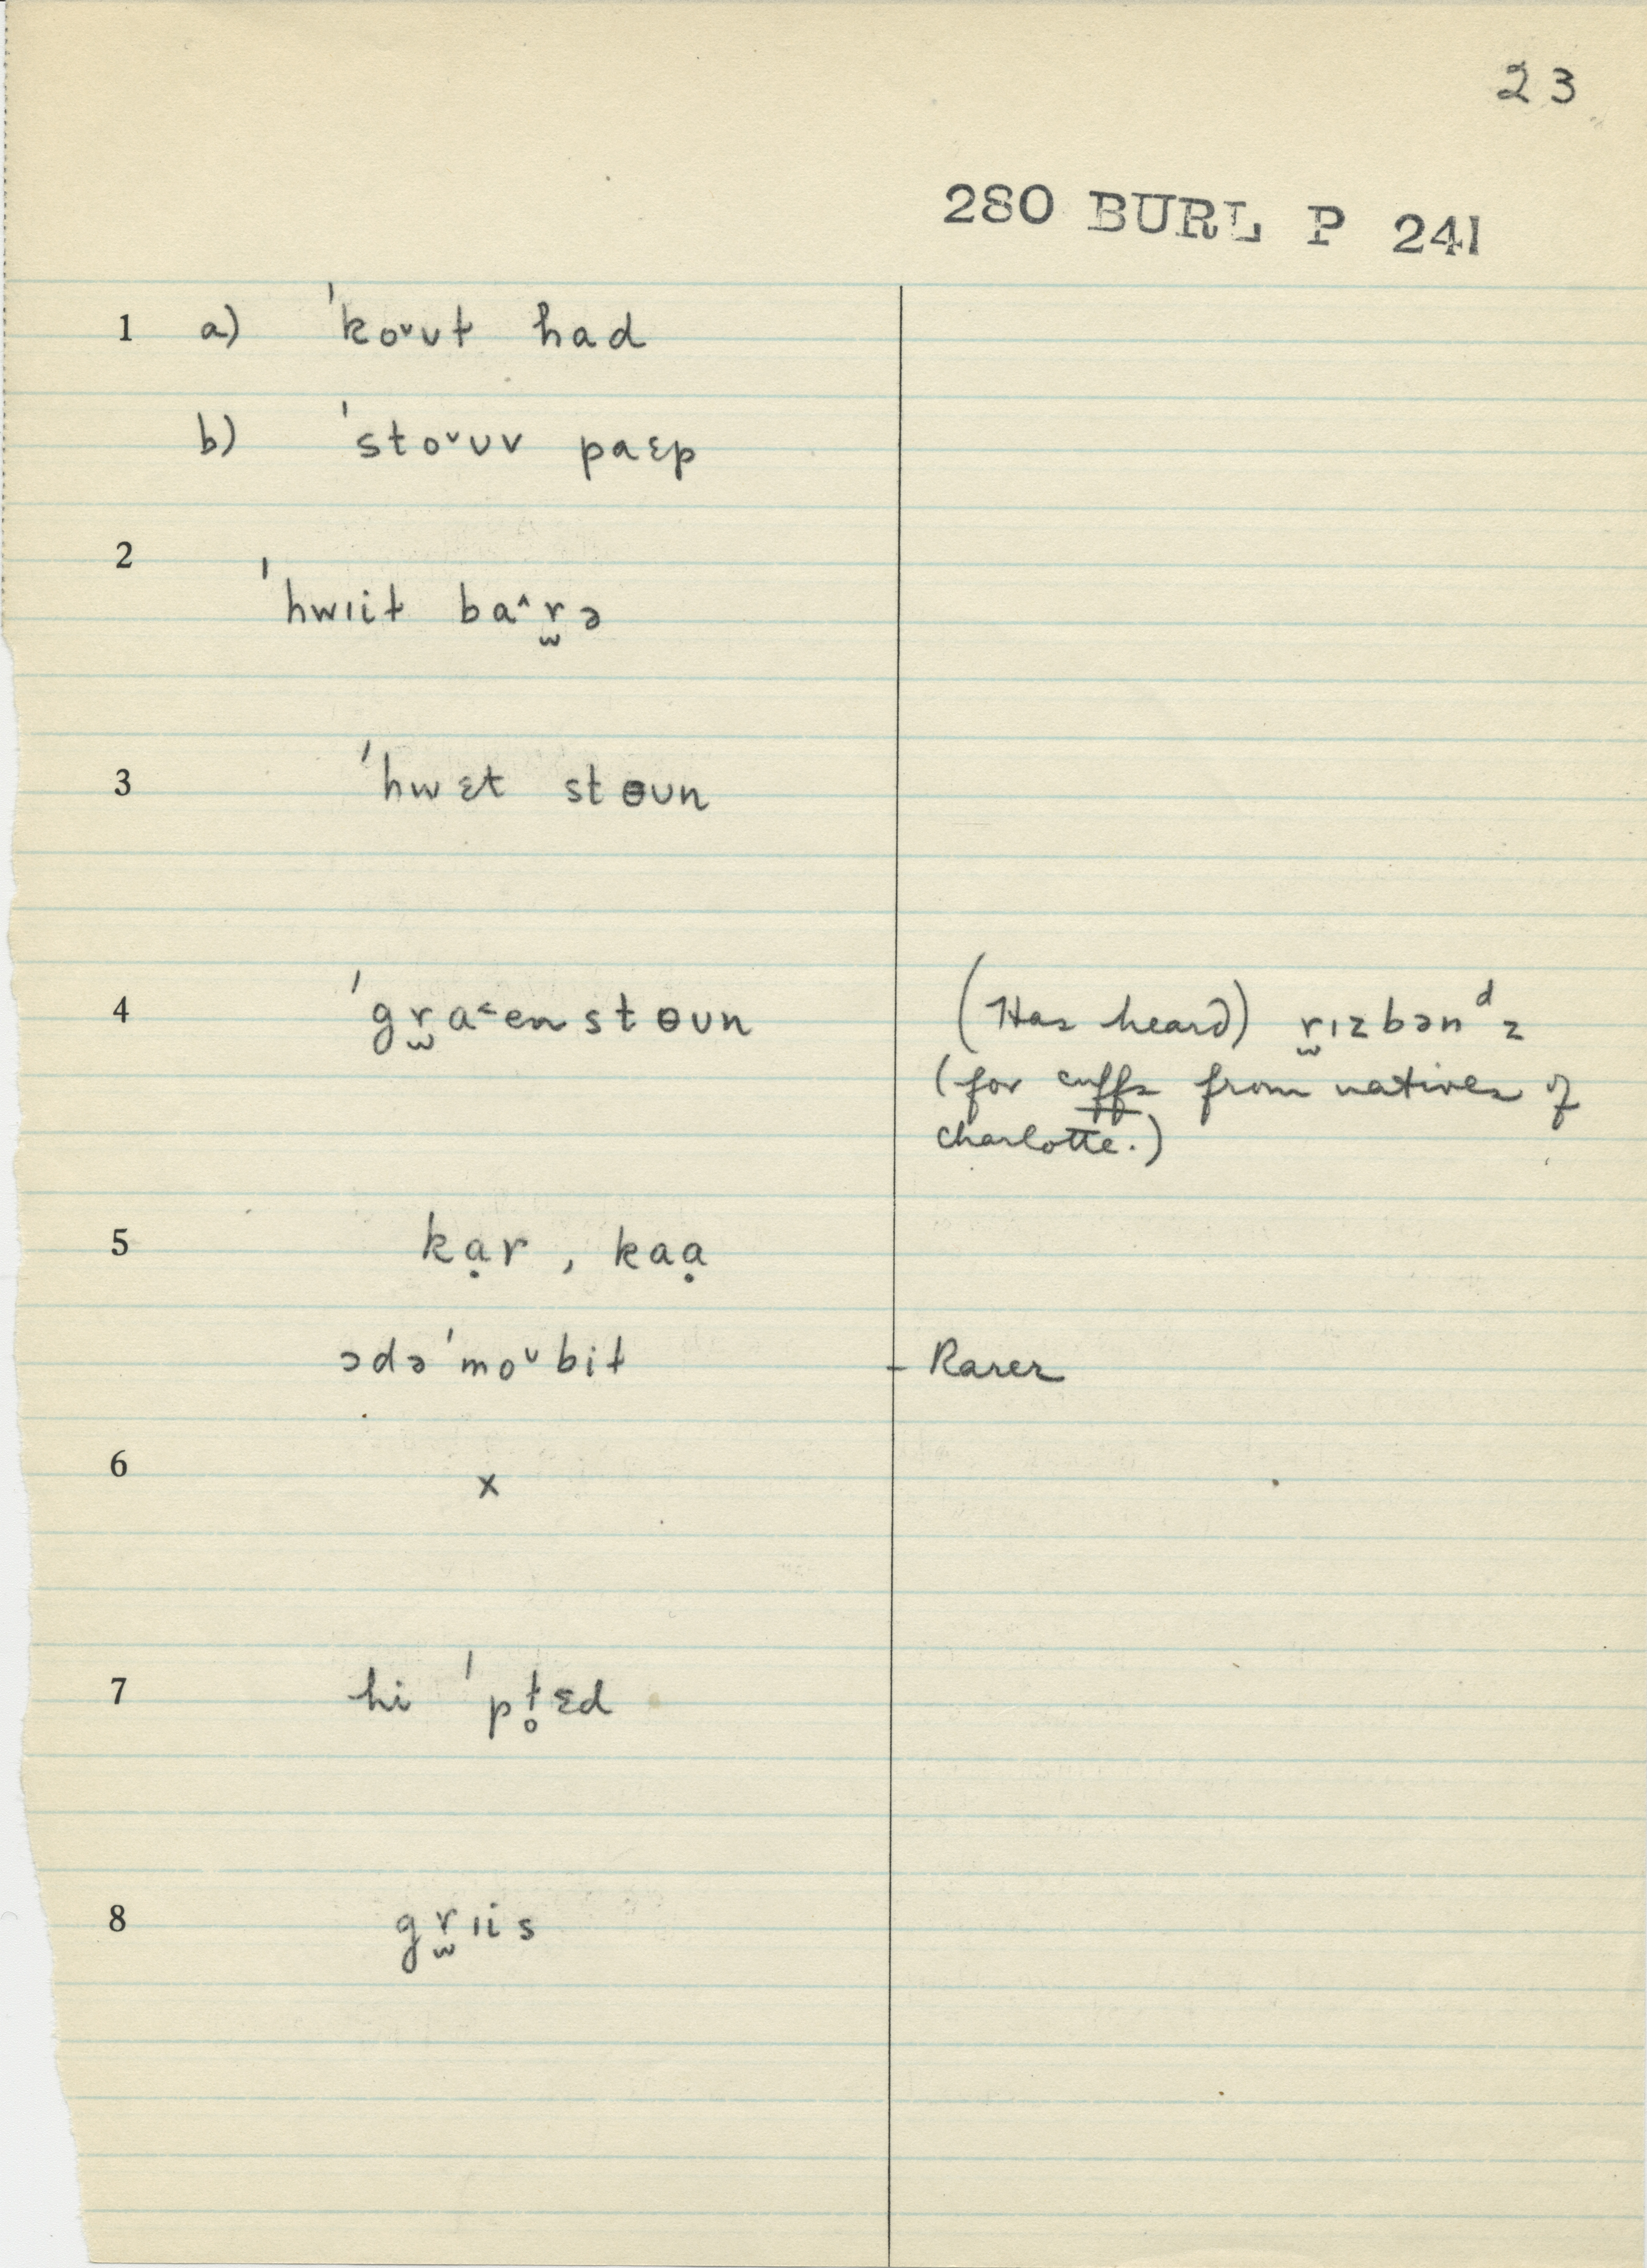 23
280 BURL P 241
1 a) ˈkoˇʊt had
b) ˈstoˇʊv paɛp
2
ˈhwɪit ba^r̫ə
3 ˈhwɛt stɵʊn
4 ˈgr̫a˂enstɵʊn (Has heard) r̫ɪzbənᵈz
(for cuffs from natives of
Charlotte.)
5 kạr, kaạ
ɔdəˈmoˇbit - Rarer
6
x
7 hi ˈpɫ̥ɛd
8 gr̫ɪis